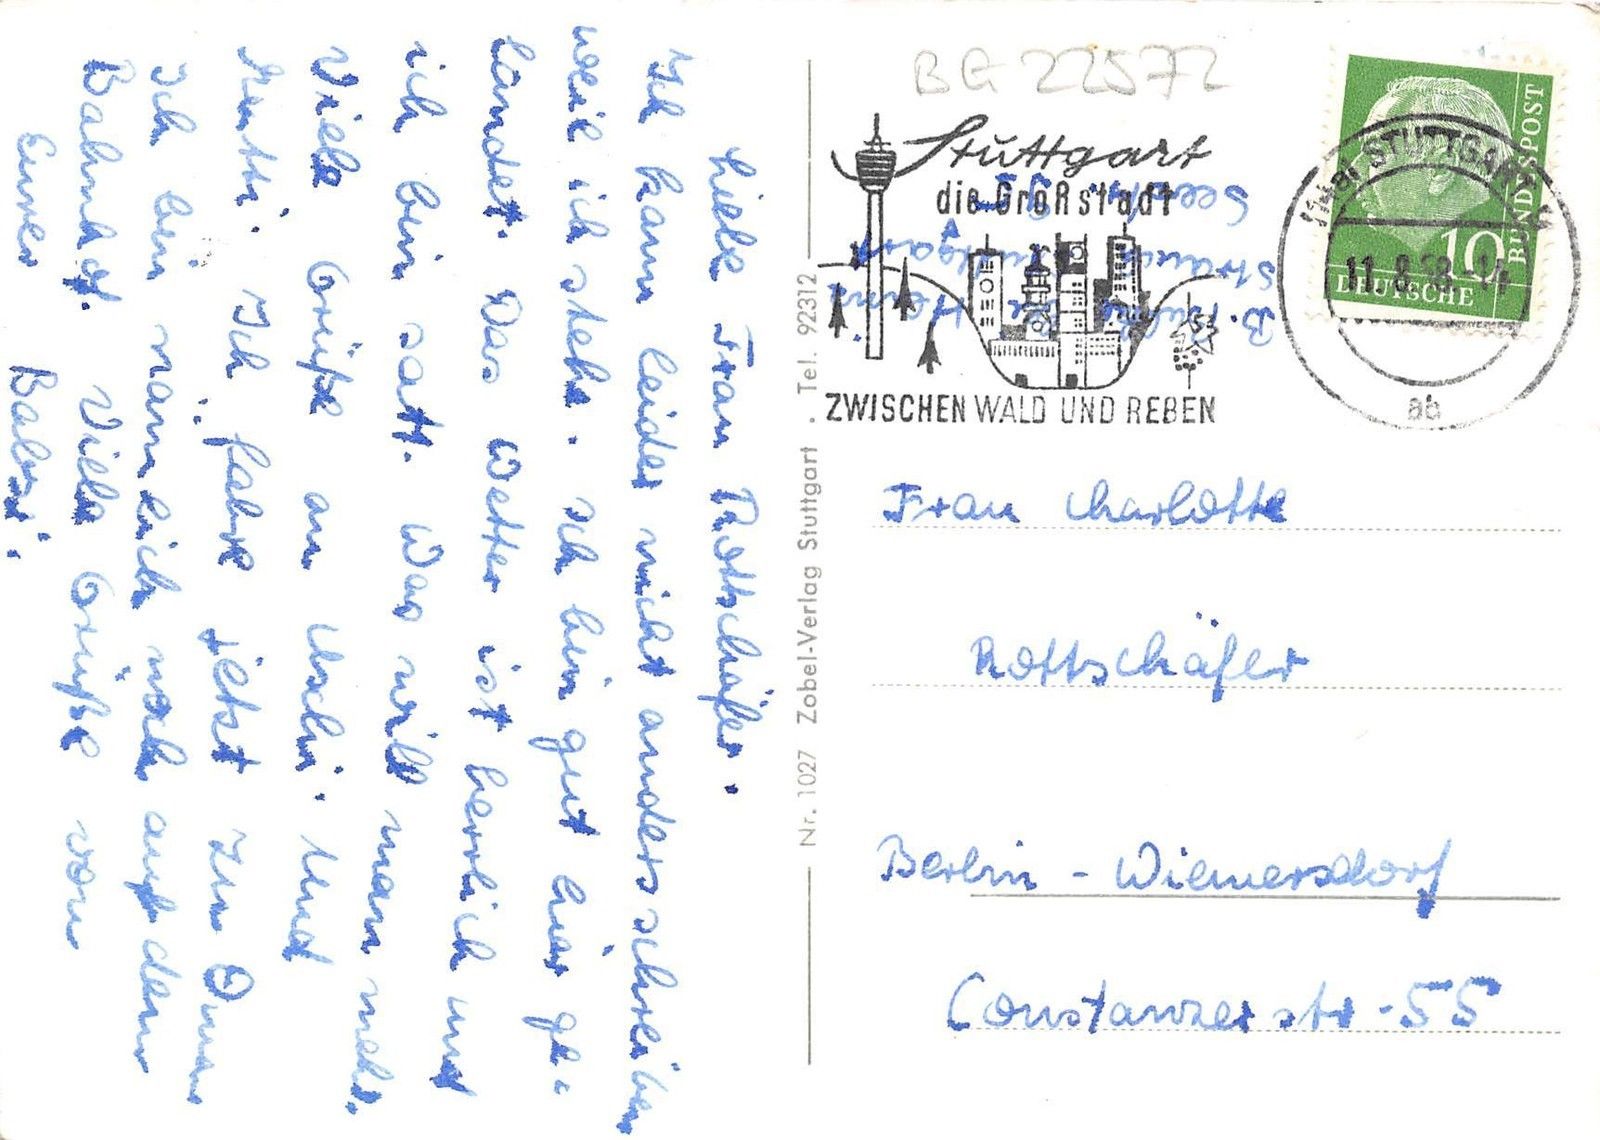 Liebe Frau Rottschäfer.
Ich kann leider nicht anders schreiben
weil ich stehe. Ich bin gut hier ge-
landet. Das Wetter ist herrlich und
ich bin satt. Was will man mehr.
Viele Grüße an Uschi. Und
Mutti. Ich fahre jetzt zur Oma
Ich bin nämlich noch auf dem
Bahnhof. Viele Grüße von
Eurer Babsi.
Nr. 1027 Zobel-Verlag Stuttgart . Tel. 92312
BG 22572
Stuttgart
die Großstadt
ZWISCHEN WALD UND REBEN
STUTTGART
11.8.58.-14
ab
10
DEUTSCHE
BUNDESPOST
B.
Stuttgart
Frau Charlotte
Rottschäfer
Berlin - Wiemersdorf
Constanzerstr. 55